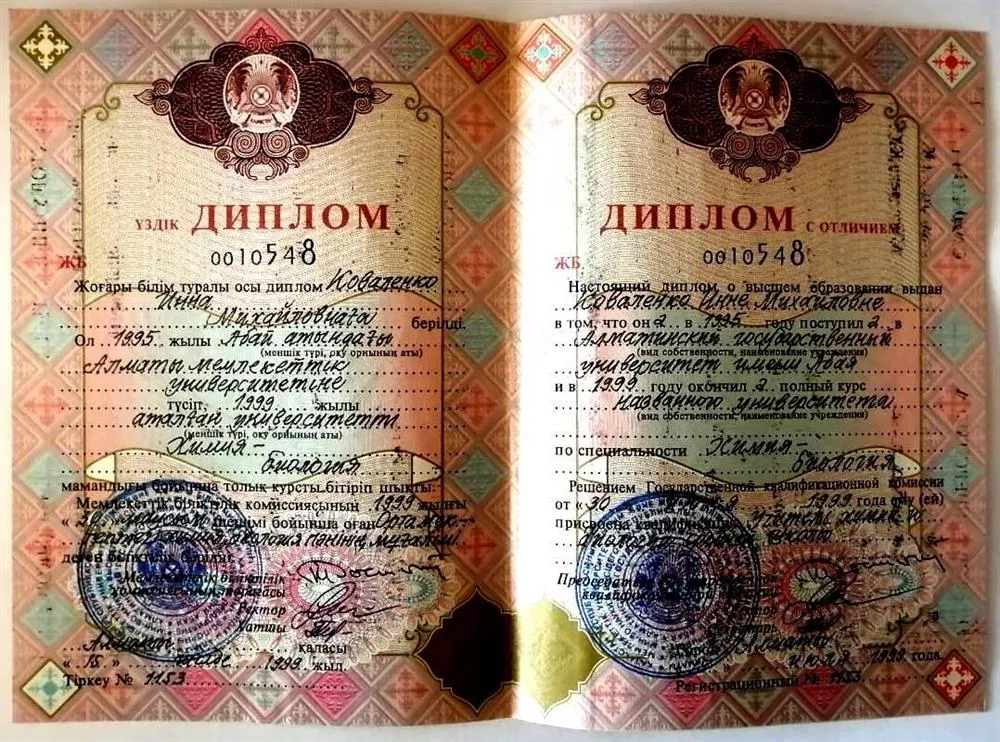 ҮЗДІК ДИПЛОМ
ЖБ 0010548
Жоғары білім туралы осы диплом Коваленко
Инна
Михайловнаға берілді.
Ол 1995 жылы Абай атындағы
(меншік түрі, оқу орнының аты)
Алматы мемлекеттік
университетіне
түсіп 1999 жылы
аталған университетті
(меншік түрі, оқу орнының аты)
Химия-
биология
мамандығы бойынша толық курсты бітіріп шықты.
Мемлекеттік біліктілік комиссиясының 1999 жылғы
шешімі бойынша оған
Мемлекеттік біліктілік
комиссиясының төрағасы
Ректор
Хатшы
Алматы қаласы
« 15 » шілде 1999 жыл.
Тіркеу № 1153
ДИПЛОМ С ОТЛИЧИЕМ
ЖБ 0010548
Настоящий диплом о высшем образовании выдан
Коваленко Инне Михайловне
в том, что она в 1995 году поступила в
Алматинский государственный
(вид собственности, наименование учреждения)
университет имени Абая
и в 1999 году окончила полный курс
названного университета
(вид собственности, наименование учреждения)
по специальности Химия-
биология
Решением Государственной квалификационной комиссии
от « 30 » 1999 года ему (ей)
присвоена квалификация Учитель химии и
биологии
Председатель Государственной
квалификационной комиссии
Ректор
Секретарь
Город Алматы
июля 1999 года.
Регистрационный № 1153